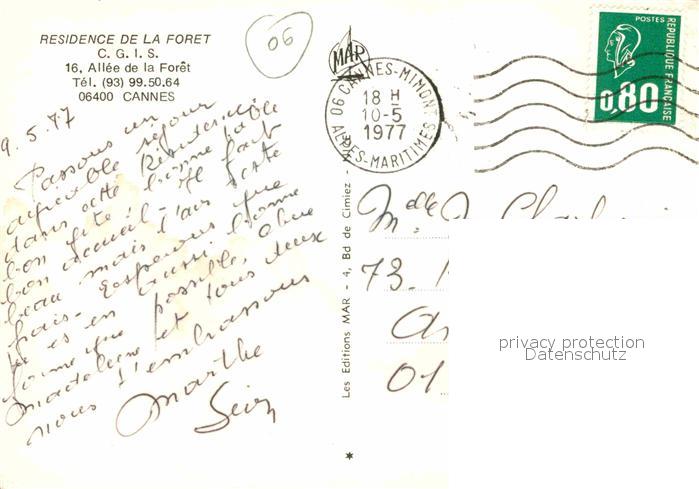 RESIDENCE DE LA FORET
C. G. I. S.
16, Allée de la Forêt
Tél. (93) 99.50.64
06400 CANNES
06
MAR
06 CANNES-MIMONT
18 H
10-5
1977
ALPES-MARITIMES
POSTES
REPUBLIQUE FRANÇAISE
0,80
9.5.77
Passons un
agréable séjour
dans cette
bon gîte, bonne table
bon accueil - Il fait
beau mais l'air reste
frais - Espérons que
tu es en aussi bonne
forme que possible,
Madeleine et tous deux
nous t'embrassons
Marthe
Les Editions MAR - 4, Bd de Cimiez -
Mdlle
73.
01
privacy protection
Datenschutz